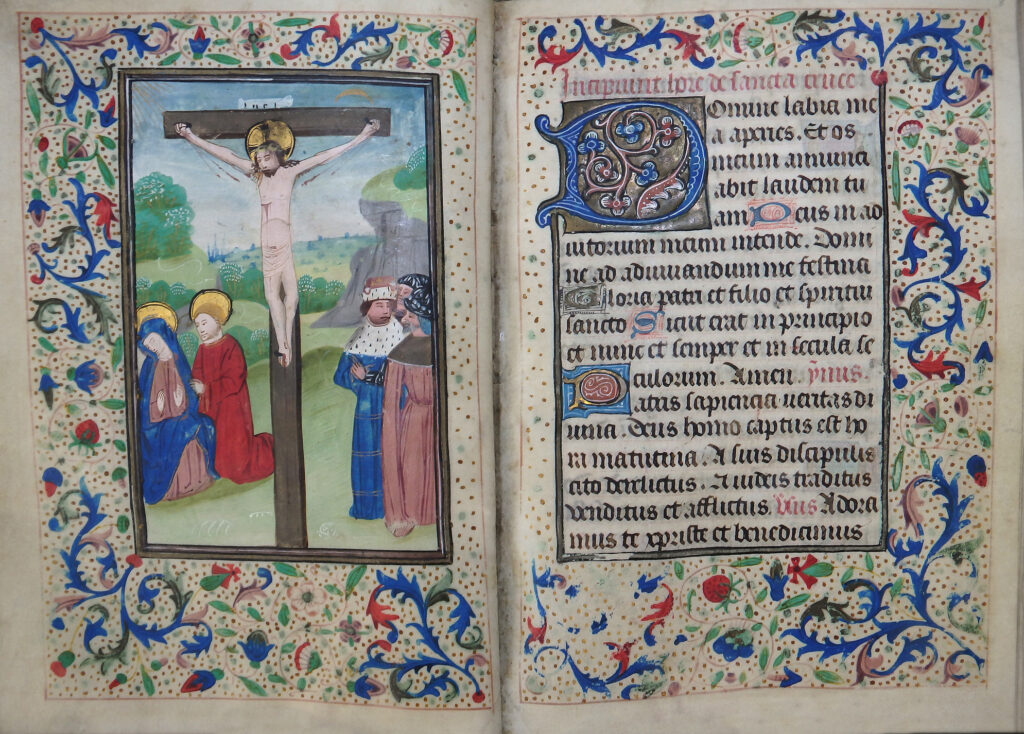 INRI
Incipiunt hore de sancta cruce
Domine labia me
a aperies. Et os
meum annunci
abit laudem tu
am Deus in ad
iutorium meum intende. Domi
ne ad adiuuandum me festina
Gloria patri et filio et spiritui
sancto Sicut erat in principio
et nunc et semper et in secula se
culorum. Amen. ymus.
Patris sapiencia ueritas di
uina. Deus homo captus est ho
ra matutina. A suis discipulis
cito derelictus. A iudeis traditus
venditus et afflictus. v̄sus Adora
mus te xpriste et benedicimus